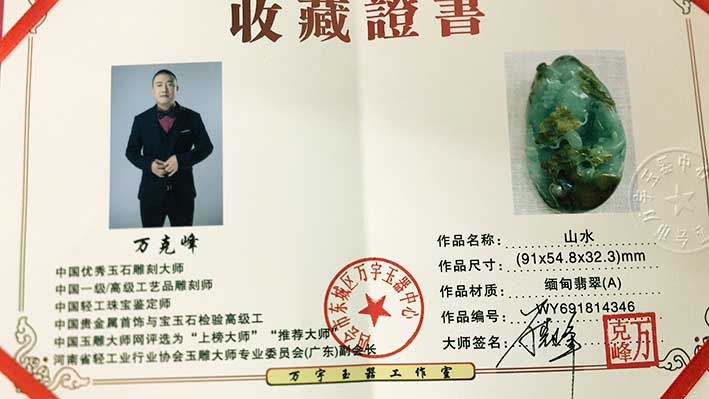 收藏證書
万克峰
中国优秀玉石雕刻大师
中国一级/高级工艺品雕刻师
中国轻工珠宝鉴定师
中国贵金属首饰与宝玉石检验高级工
中国玉雕大师网评选为“上榜大师”“推荐大师”
河南省轻工业行业协会玉雕大师专业委员会(广东)副会长
四会市东城区万字玉器中心
作品名称: 山水
作品尺寸: (91x54.8x32.3)mm
作品材质: 缅甸翡翠(A)
作品编号: WY691814346
大师签名:
万克峰
万字玉器工作室